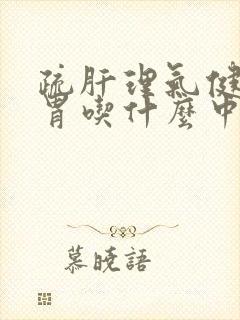 疏肝理氣健
胃喫什麼中
慕曉語